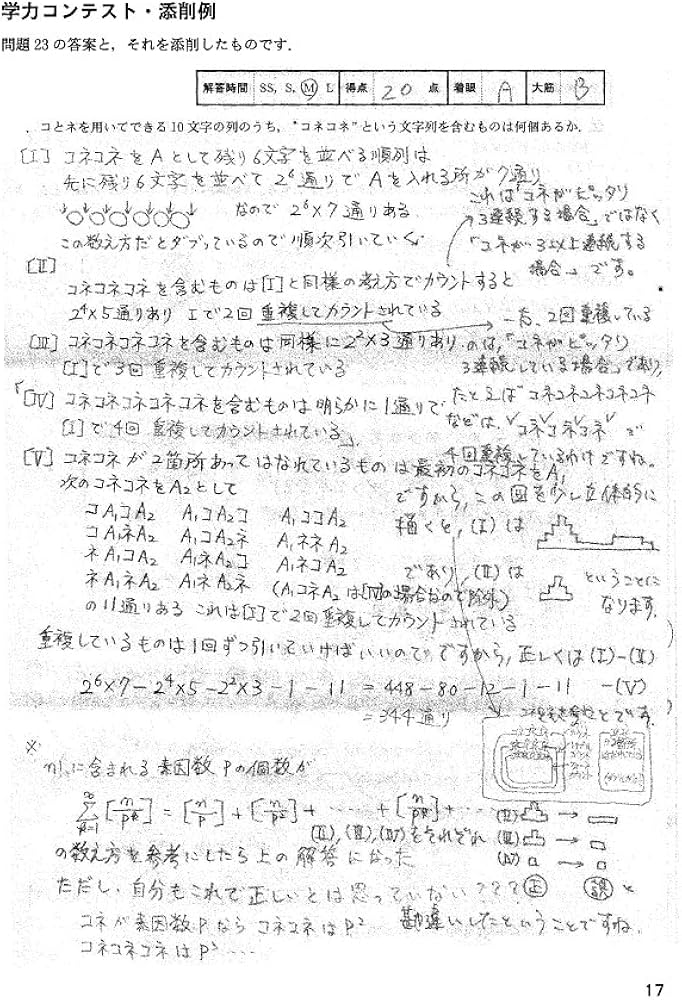 学力コンテスト・添削例
問題23の答案と，それを添削したものです．
解答時間 SS, S, M, L 得点 20 点 着眼 A 大筋 B
コとネを用いてできる10文字の列のうち，“コネコネ”という文字列を含むものは何個あるか．
[I] コネコネをAとして残り6文字を並べる順列は
先に残り6文字を並べて 2⁶通りで Aを入れる所が7通り
なので 2⁶×7 通りある
この数え方だとダブっているので順次引いていく
これは「コネがピッタリ
3連続する場合」ではなく
「コネが3以上連続する
場合」です。
[II]
コネコネコネを含むものは[I]と同様の考え方でカウントすると
2⁴×5通りあり Iで2回重複してカウントされている
[III] コネコネコネコネを含むものは同様に2²×3通りあり
[I]で3回重複してカウントされている
「[IV] コネコネコネコネコネを含むものは明らかに1通りで
[I]で4回重複してカウントされている」
一方、2回重複している
のは，「コネがピッタリ
3連続している場合」であり，
たとえばコネコネコネコネコネ
などは，コネコネコネ で
4回重複しているわけですね。
[V] コネコネが2箇所あってはなれているものは最初のコネコネをA₁
次のコネコネをA₂として
コA₁コA₂ A₁コA₂コ A₁ココA₂
コA₁ネA₂ A₁コA₂ネ A₁ネネA₂
ネA₁コA₂ A₁ネA₂コ A₁ネコA₂
ネA₁ネA₂ A₁ネA₂ネ (A₁コネA₂は[IV]の場合なので除外)
の11通りある これは[I]で2回重複してカウントされている
ですから，この図を少し立体的に
描くと，(I)は
であり，(II)は
ということに
なります．
重複しているものは1回ずつ引いていけばいいので
ですから，正しくは(I)−(II)
−(V)
2⁶×7−2⁴×5−2²×3−1−11 = 448−80−12−1−11
=344通り
とです．
※
n!に含まれる素因数Pの個数が
∞Σk=1 [n/pᵏ] = [n/p] + [n/p²] + ‥‥ + [n/pᵏ] + ‥‥
の数え方を参考にしたら上の解答になった
ただし、自分もこれで正しいとは思っていない？？？
コネが素因数Pなら コネコネはP²
コネコネコネはP³ ‥‥
(II),(III),(IV)をそれぞれ
(II) →
(III) →
(IV) →
正 誤 と
勘違いしたということですね．
17